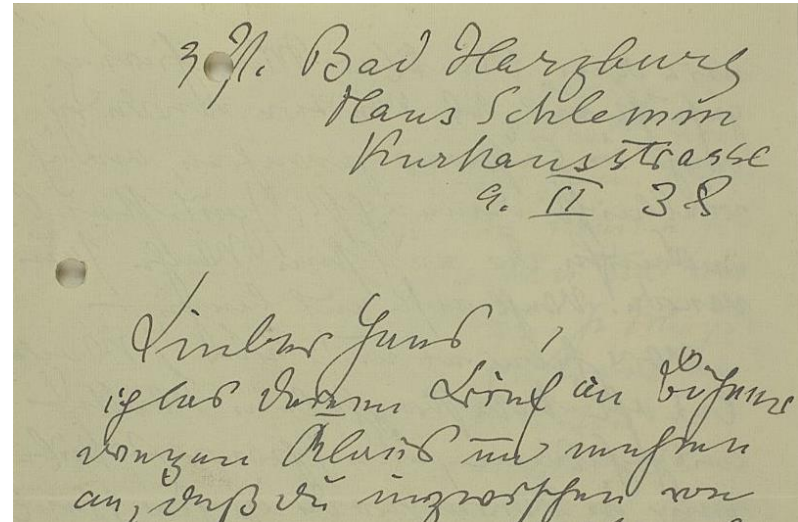 z. Zt. Bad Harzburg
Haus Schlemm
Kurhausstrasse
9. II 38
Lieber Hans,
ich las deinen Brief an
wegen Klaus und nehme
an, daß du inzwischen von